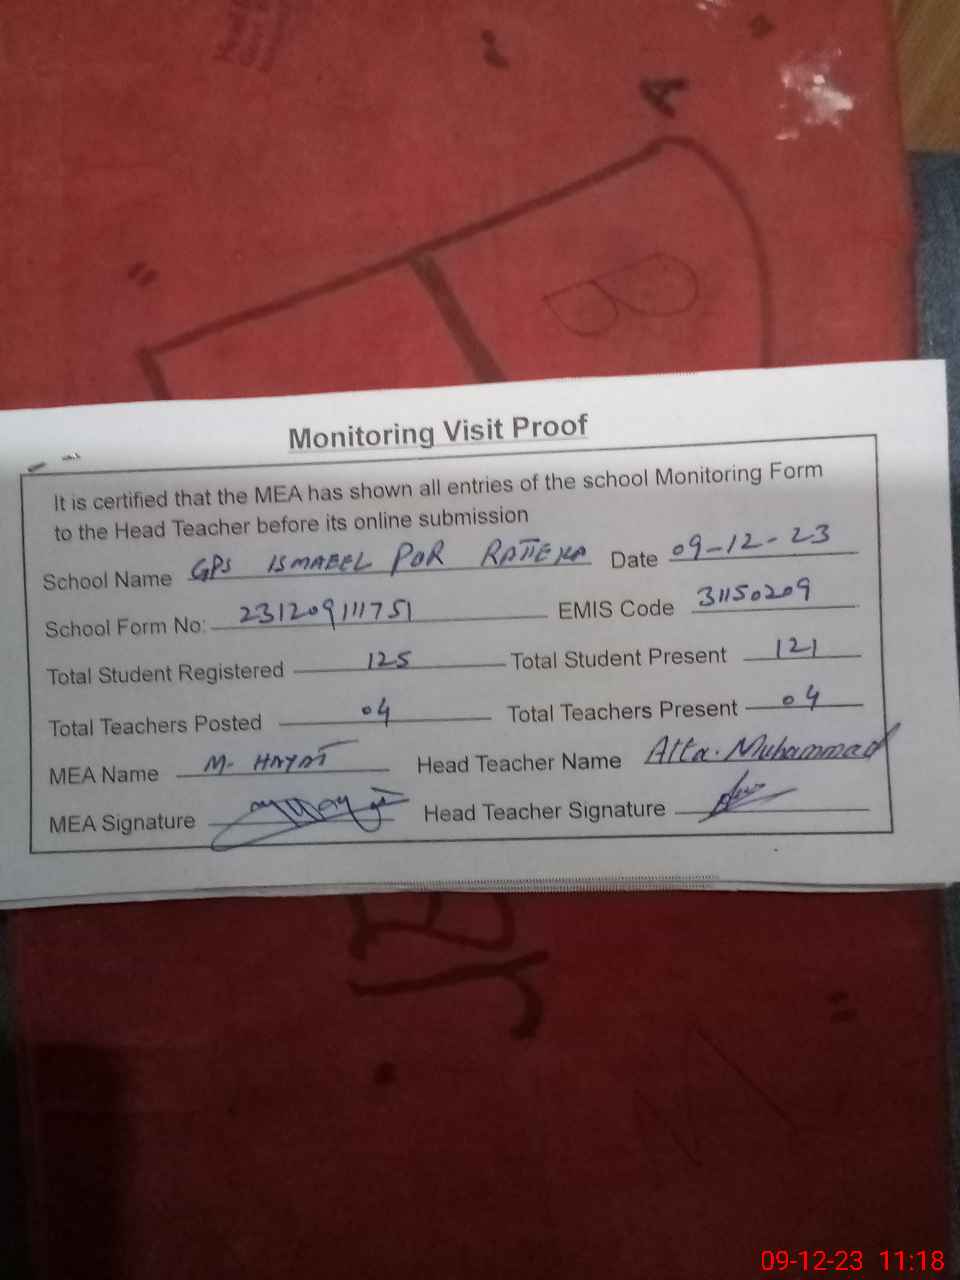 A
B
Monitoring Visit Proof
It is certified that the MEA has shown all entries of the school Monitoring Form
to the Head Teacher before its online submission
School Name GPS ISMAEEL POR RATTEKA Date 09-12-23
School Form No: 231209111751 EMIS Code 31150209
Total Student Registered 125 Total Student Present 121
Total Teachers Posted 04 Total Teachers Present 04
MEA Name M. HAYAT Head Teacher Name Atta. Muhammad
MEA Signature Head Teacher Signature
09-12-23 11:18